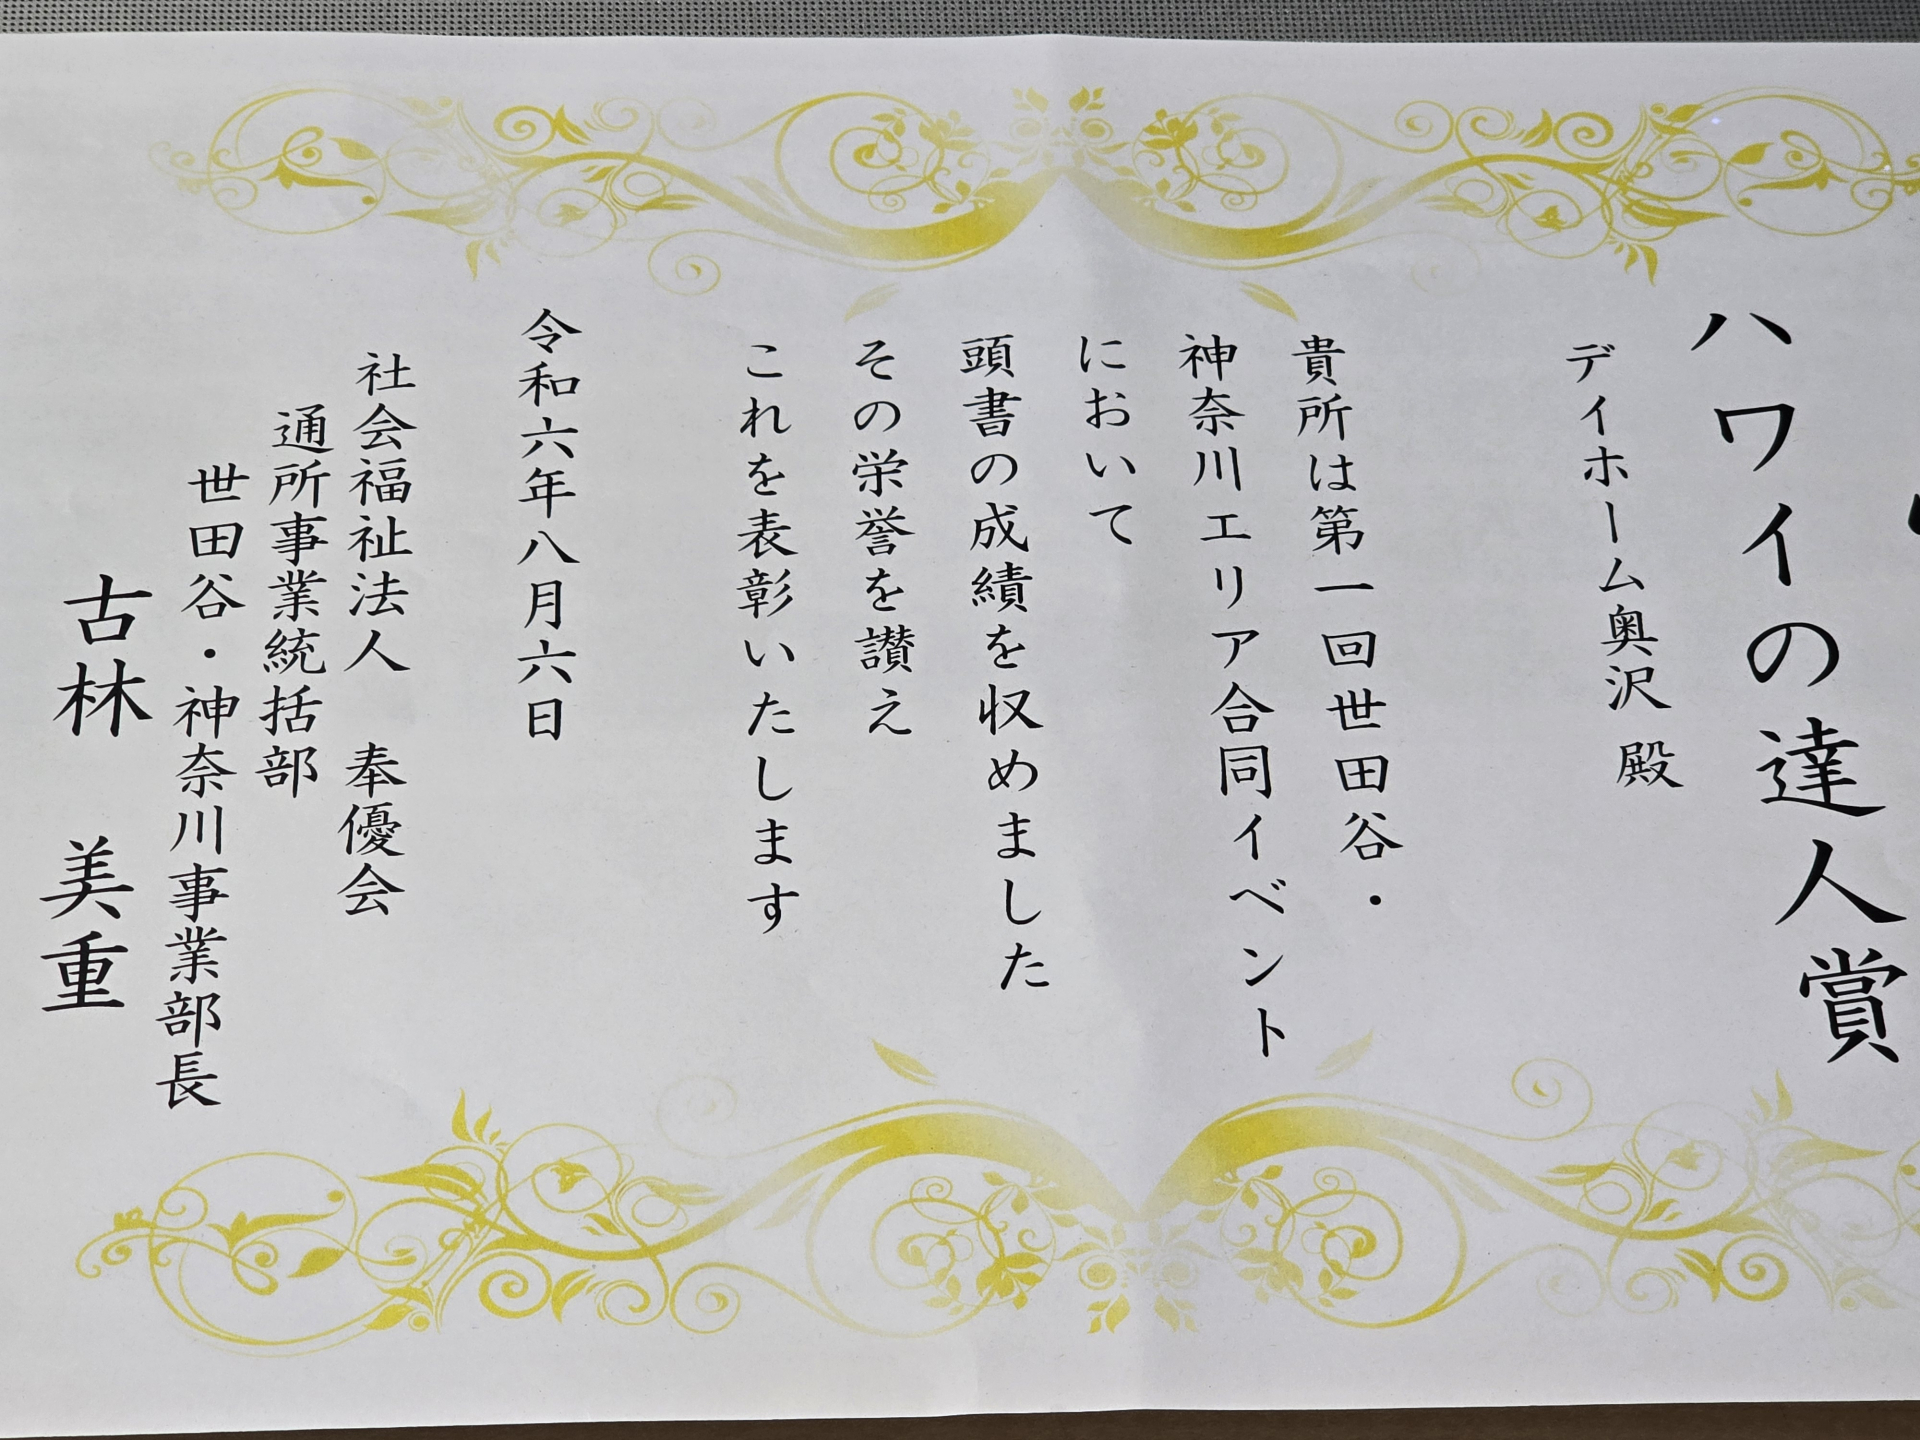 ハワイの達人賞
デイホーム奥沢 殿
貴所は第一回世田谷・
神奈川エリア合同イベント
において
頭書の成績を収めました
その栄誉を讃え
これを表彰いたします
令和六年八月六日
社会福祉法人 奉優会
通所事業統括部
世田谷・神奈川事業部長
古林 美重